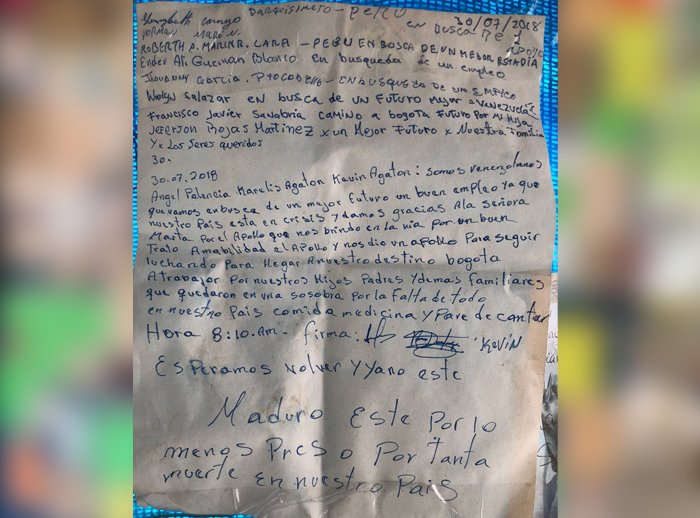 Barquisimeto - Perú
30/07/2018
en busca de 1
apoyo
ROBERTH A. MARINA. LARA - PERU EN BOSCA DE UN MEJOR ESTADIA
Ender Ali Guzman Blanco en busqueda de un empleo
Jhovanny Garcia. Ptocabello - EN BUSQUEDA DE UN EMPLEO
Warlyn Salazar EN busca DE UN FUTURO Mejor - VENEZUELA
Francisco Javier Sanabria CAMINO a bogota FUTURO Por Mi Hija
Jeferson Rojas Martinez x un Mejor Futuro x Nuestra Familia
Y x Los Seres queridos
30.
30.07.2018
Angel Palencia Marelis Agaton Kevin Agaton: somos venezolanos
que vamos en busca de un mejor futuro un buen empleo ya que
nuestro Pais esta en crisis y damos gracias Ala señora
Marta Por el Apollo que nos brindo en la via por un buen
Trato Amabilidad el Apollo y nos dio un apollo Para seguir
luchando Para llegar A nuestro destino bogota
A trabajar Por nuestros Hijos Padres y demas familiares
que quedaron en una sosobra Por la falta de todo
en nuestro Pais comida medicina y Pare de contar
Hora 8:10.Am. firma: KEVIN
Esperamos volver y ya no este
Maduro Este Por lo
menos Preso Por Tanta
muerte en nuestro Pais